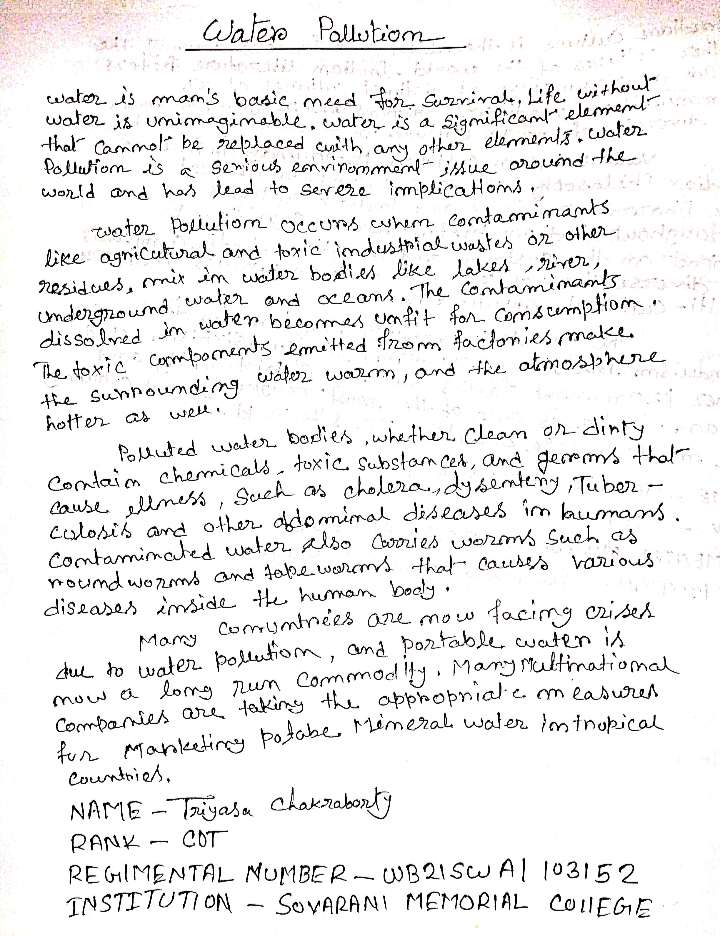 Water Pollution
water is man's basic need for survival. Life without
water is unimaginable. water is a significant element
that cannot be replaced with any other elements. Water
Pollution is a serious environment issue around the
world and has lead to severe implications.
water Pollution occurs when contaminants
like agricutural and toxic industrial wastes or other
residues, mix in water bodies like lakes, river,
underground water and oceans. The contaminants
dissolved in water becomes unfit for consumption.
The toxic components emitted from factories make
the surrounding water warm, and the atmosphere
hotter as well.
Polluted water bodies, whether clean or dirty
Contain chemicals, toxic substances, and germs that
cause illness, such as cholera, dysentery, Tuber-
culosis and other abdominal diseases in humans.
Contaminated water also carries worms such as
roundworms and tapeworms that causes various
diseases inside the human body.
Many conuntries are now facing crises
due to water pollution, and portable water is
now a long run commodity. Many Multinational
Companies are taking the appropriate measures
for Marketing potabe Mineral water in tropical
countries.
NAME - Triyasa Chakraborty
RANK - CDT
REGIMENTAL NUMBER - WB21SWA/103152
INSTITUTION - SOVARANI MEMORIAL COllEGE